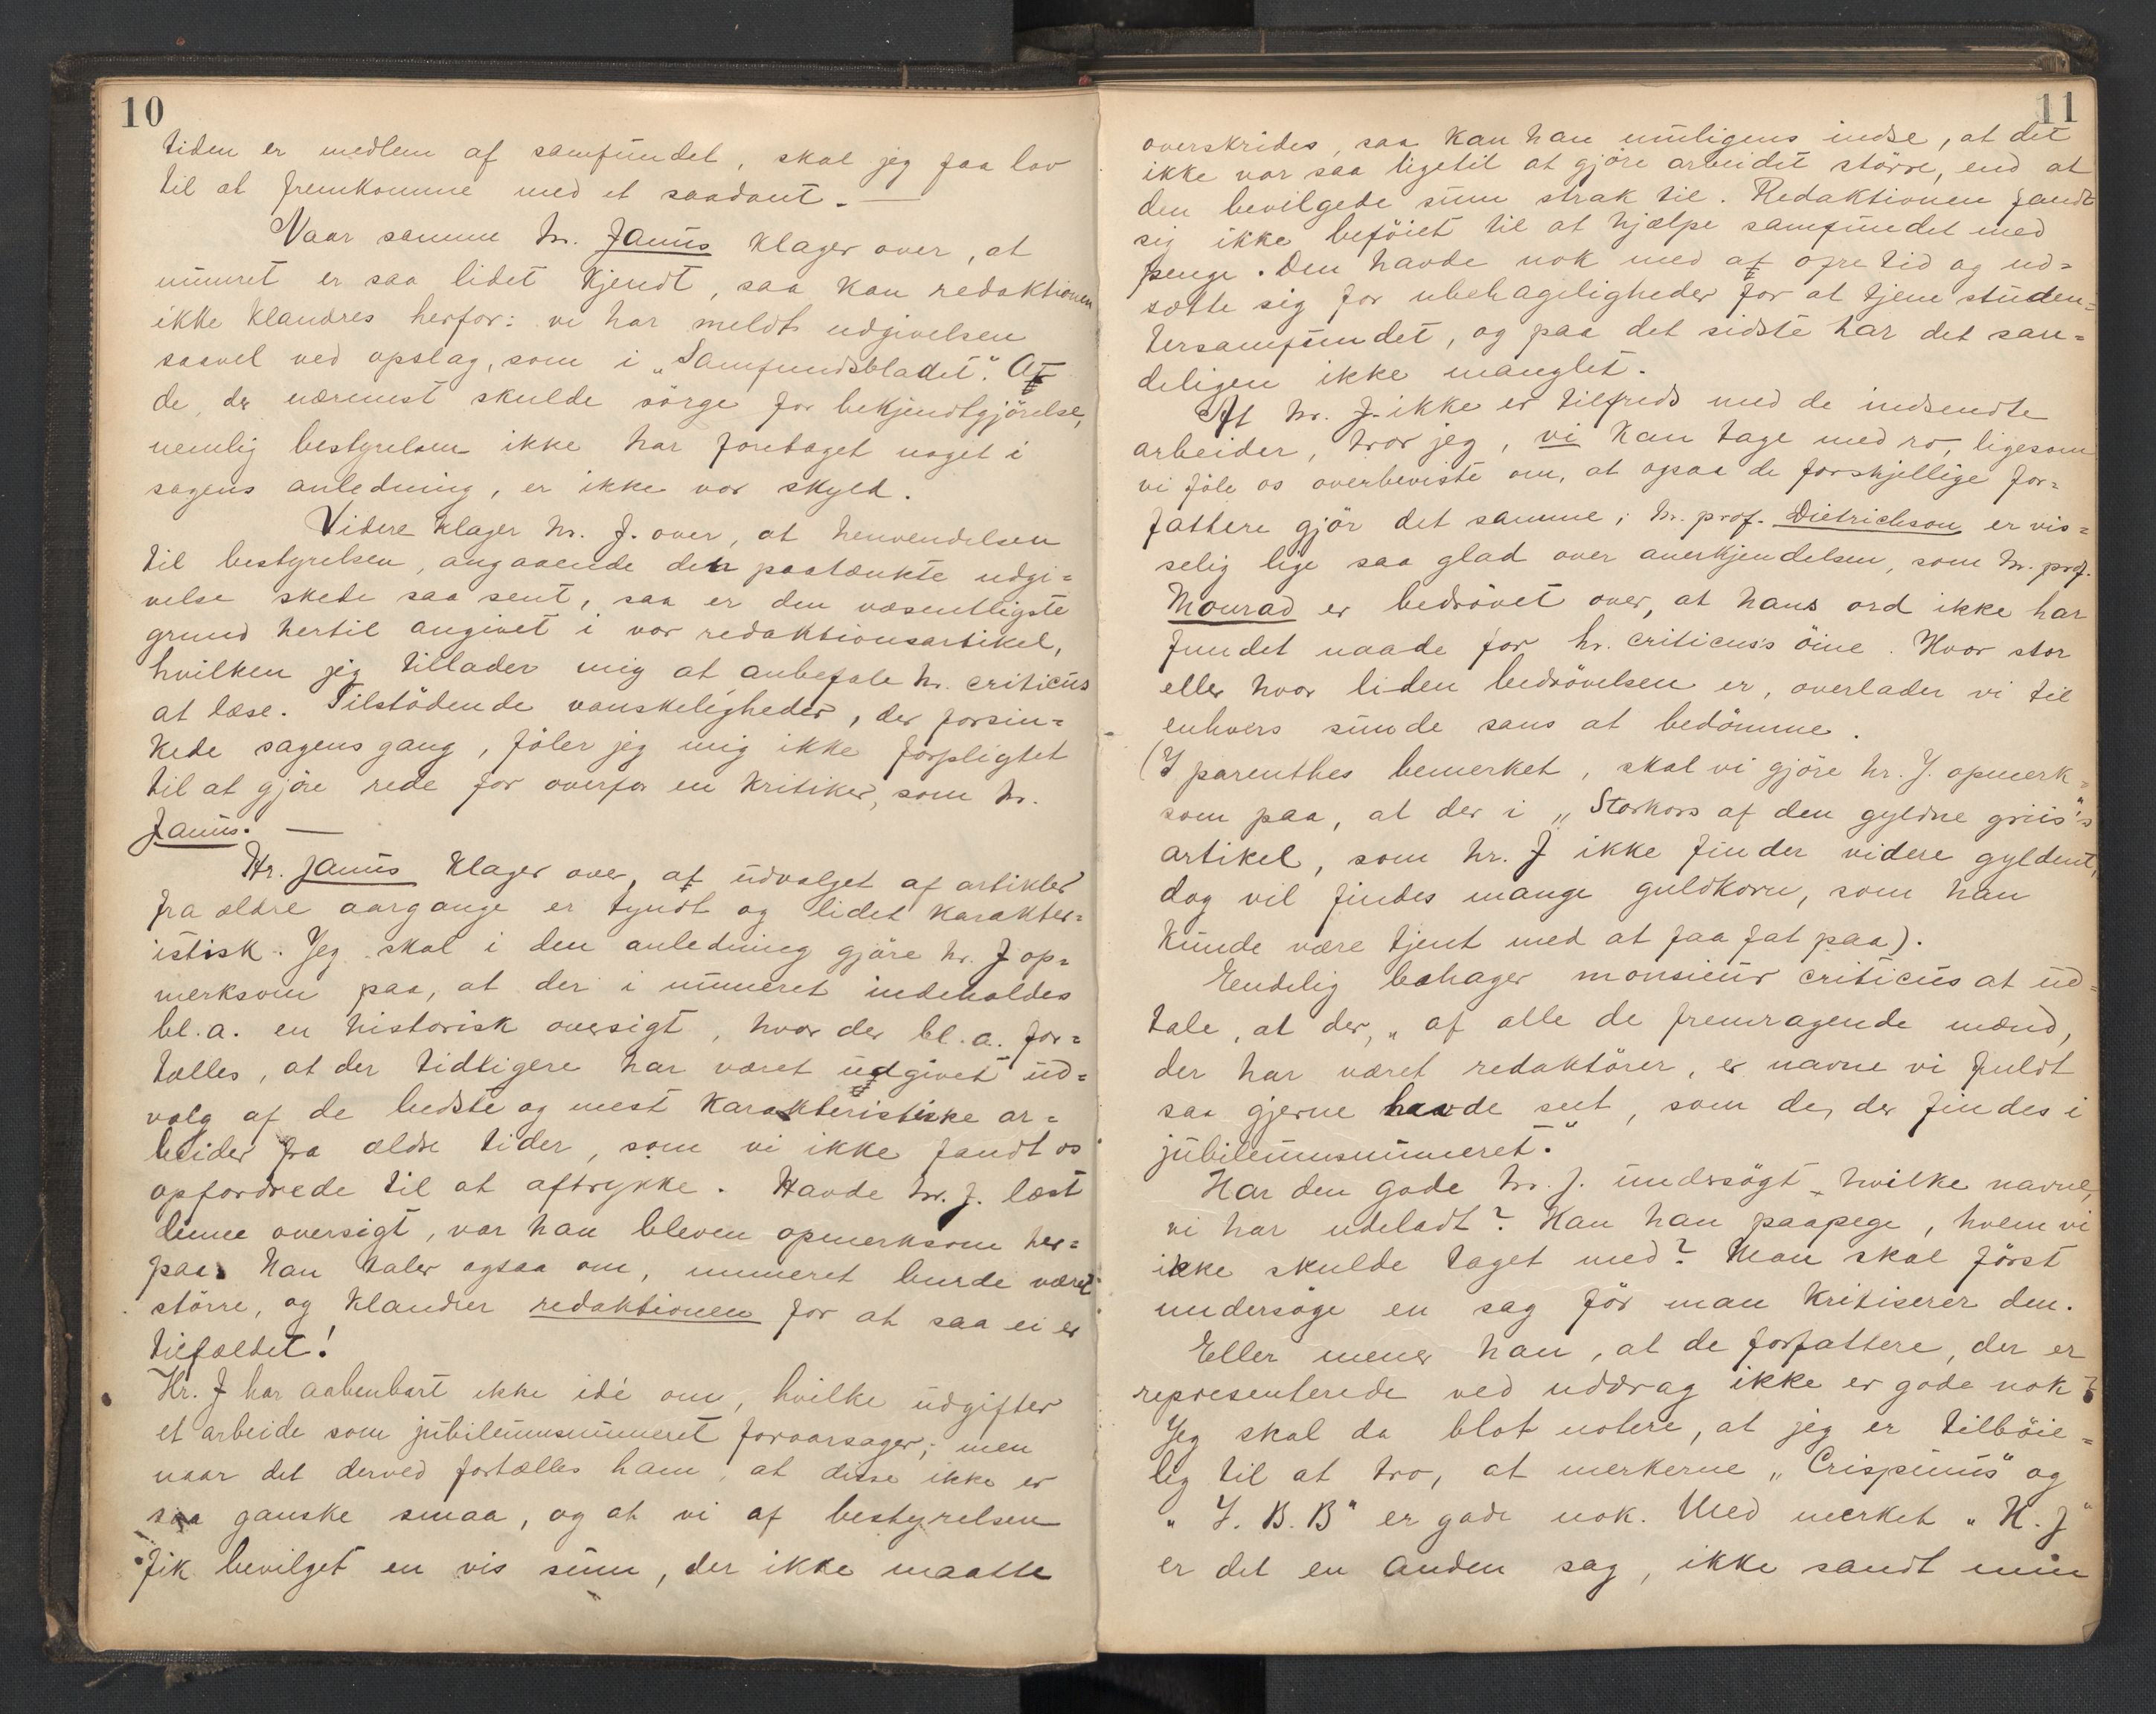 10
tiden er medlem af samfundet, skal jeg faa lov
til at fremkomme med et saadant. —
Naar samme hr. Janus klager over, at
numret er saa lidet kjendt, saa kan redaktionen
ikke klandres herfor: vi har meldt udgivelsen
saavel ved opslag, som i „Samfundsbladet“. At
de, der nærmest skulde sörge for bekjendtgjörelse,
nemlig bestyrelsen ikke har foretaget noget i
sagens anledning, er ikke vor skyld.
Videre klager hr. J. over, at henvendelsen
til bestyrelsen, angaaende den paatænkte udgi=
velse skede saa sent, saa er den væsentligste
grund hertil angivet i vor redaktionsartikel,
hvilken jeg tillader mig at anbefale hr. criticus
at læse. Tilstödende vanskeligheder, der forsin=
kede sagens gang, föler jeg mig ikke forpligtet
til at gjöre rede for overfor en kritiker, som hr.
Janus. —
Hr. Janus klager over, at udvalget af artikler
fra ældre aargange er tyndt og lidet karakter=
istisk. Jeg skal i den anledning gjöre hr. J op=
merksom paa, at der i numeret indeholdes
bl.a. en historisk oversigt, hvor der bl.a. for=
tælles, at der tidligere har været udgivet ud=
valg af de bedste og mest karakteristiske ar=
beider fra ældre tider, som vi ikke fandt os
opfordrede til at aftrykke. Havde hr. J. læst
denne oversigt, var han bleven opmerksom her=
paa. Han taler ogsaa om, numeret burde været
större, og klandrer redaktionen for at saa ei er
tilfældet!
Hr. J har aabenbart ikke idé om, hvilke udgifter
et arbeide som jubilæumsnumeret foraarsager; men
naar det derved fortælles ham, at disse ikke er
saa ganske smaa, og at vi af bestyrelsen
fik bevilget en vis sum, der ikke maatte
11
overskrides, saa kan han umuligens indse, at det
ikke var saa ligetil at gjöre arbeidet större, end at
den bevilgede sum strak til. Redaktionen fandt
sig ikke beföiet til at hjælpe samfundet med
penge. Den havde nok med at ofre tid og ud=
sætte sig for ubehageligheder for at tjene studen=
tersamfundet, og paa det sidste har det san=
deligen ikke manglet.
At hr. J. ikke er tilfreds med de indsendte
arbeider, tror jeg, vi kan tage med ro, ligesom
vi föle os overbeviste om, at ogsaa de forskjellige for=
fattere gjör det samme; hr. prof. Dietrichson er vis=
selig lige saa glad over anerkjendelsen, som hr. prof.
Monrad er bedrövet over, at hans ord ikke har
fundet naade for hr. criticus's öine. Hvor stor
eller hvor liden bedrövelsen er, overlader vi til
enhvers sunde sans at bedömme.
(I parenthes bemerket, skal vi gjöre hr. J. opmerk=
som paa, at der i „Storkors af den gyldne griis“'s
artikel, som hr. J ikke finder videre gyldent,
dog vil findes mange guldkorn, som han
kunde være tjent med at faa fat paa).
Eendelig behager monsieur criticus at ud=
tale, at der, „af alle de fremragende mænd,
der har været redaktörer, er navne vi fuldt
saa gjerne havde seet, som de, der findes i
jubilæumsnumeret.“
Har den gode hr. J. undersögt hvilke navne,
vi har udeladt? Kan han paapege, hvem vi
ikke skulde taget med? Man skal först
undersöge en sag för man kritiserer den.
Eller mener han, at de forfattere, der er
representerede ved uddrag ikke er gode nok?
Jeg skal da blot notere, at jeg er tilböie=
lig til at tro, at merkerne „Crispinus“ og
„J. B. B“ er gode nok. Med merket „H. J“
er det en anden sag, ikke sandt min